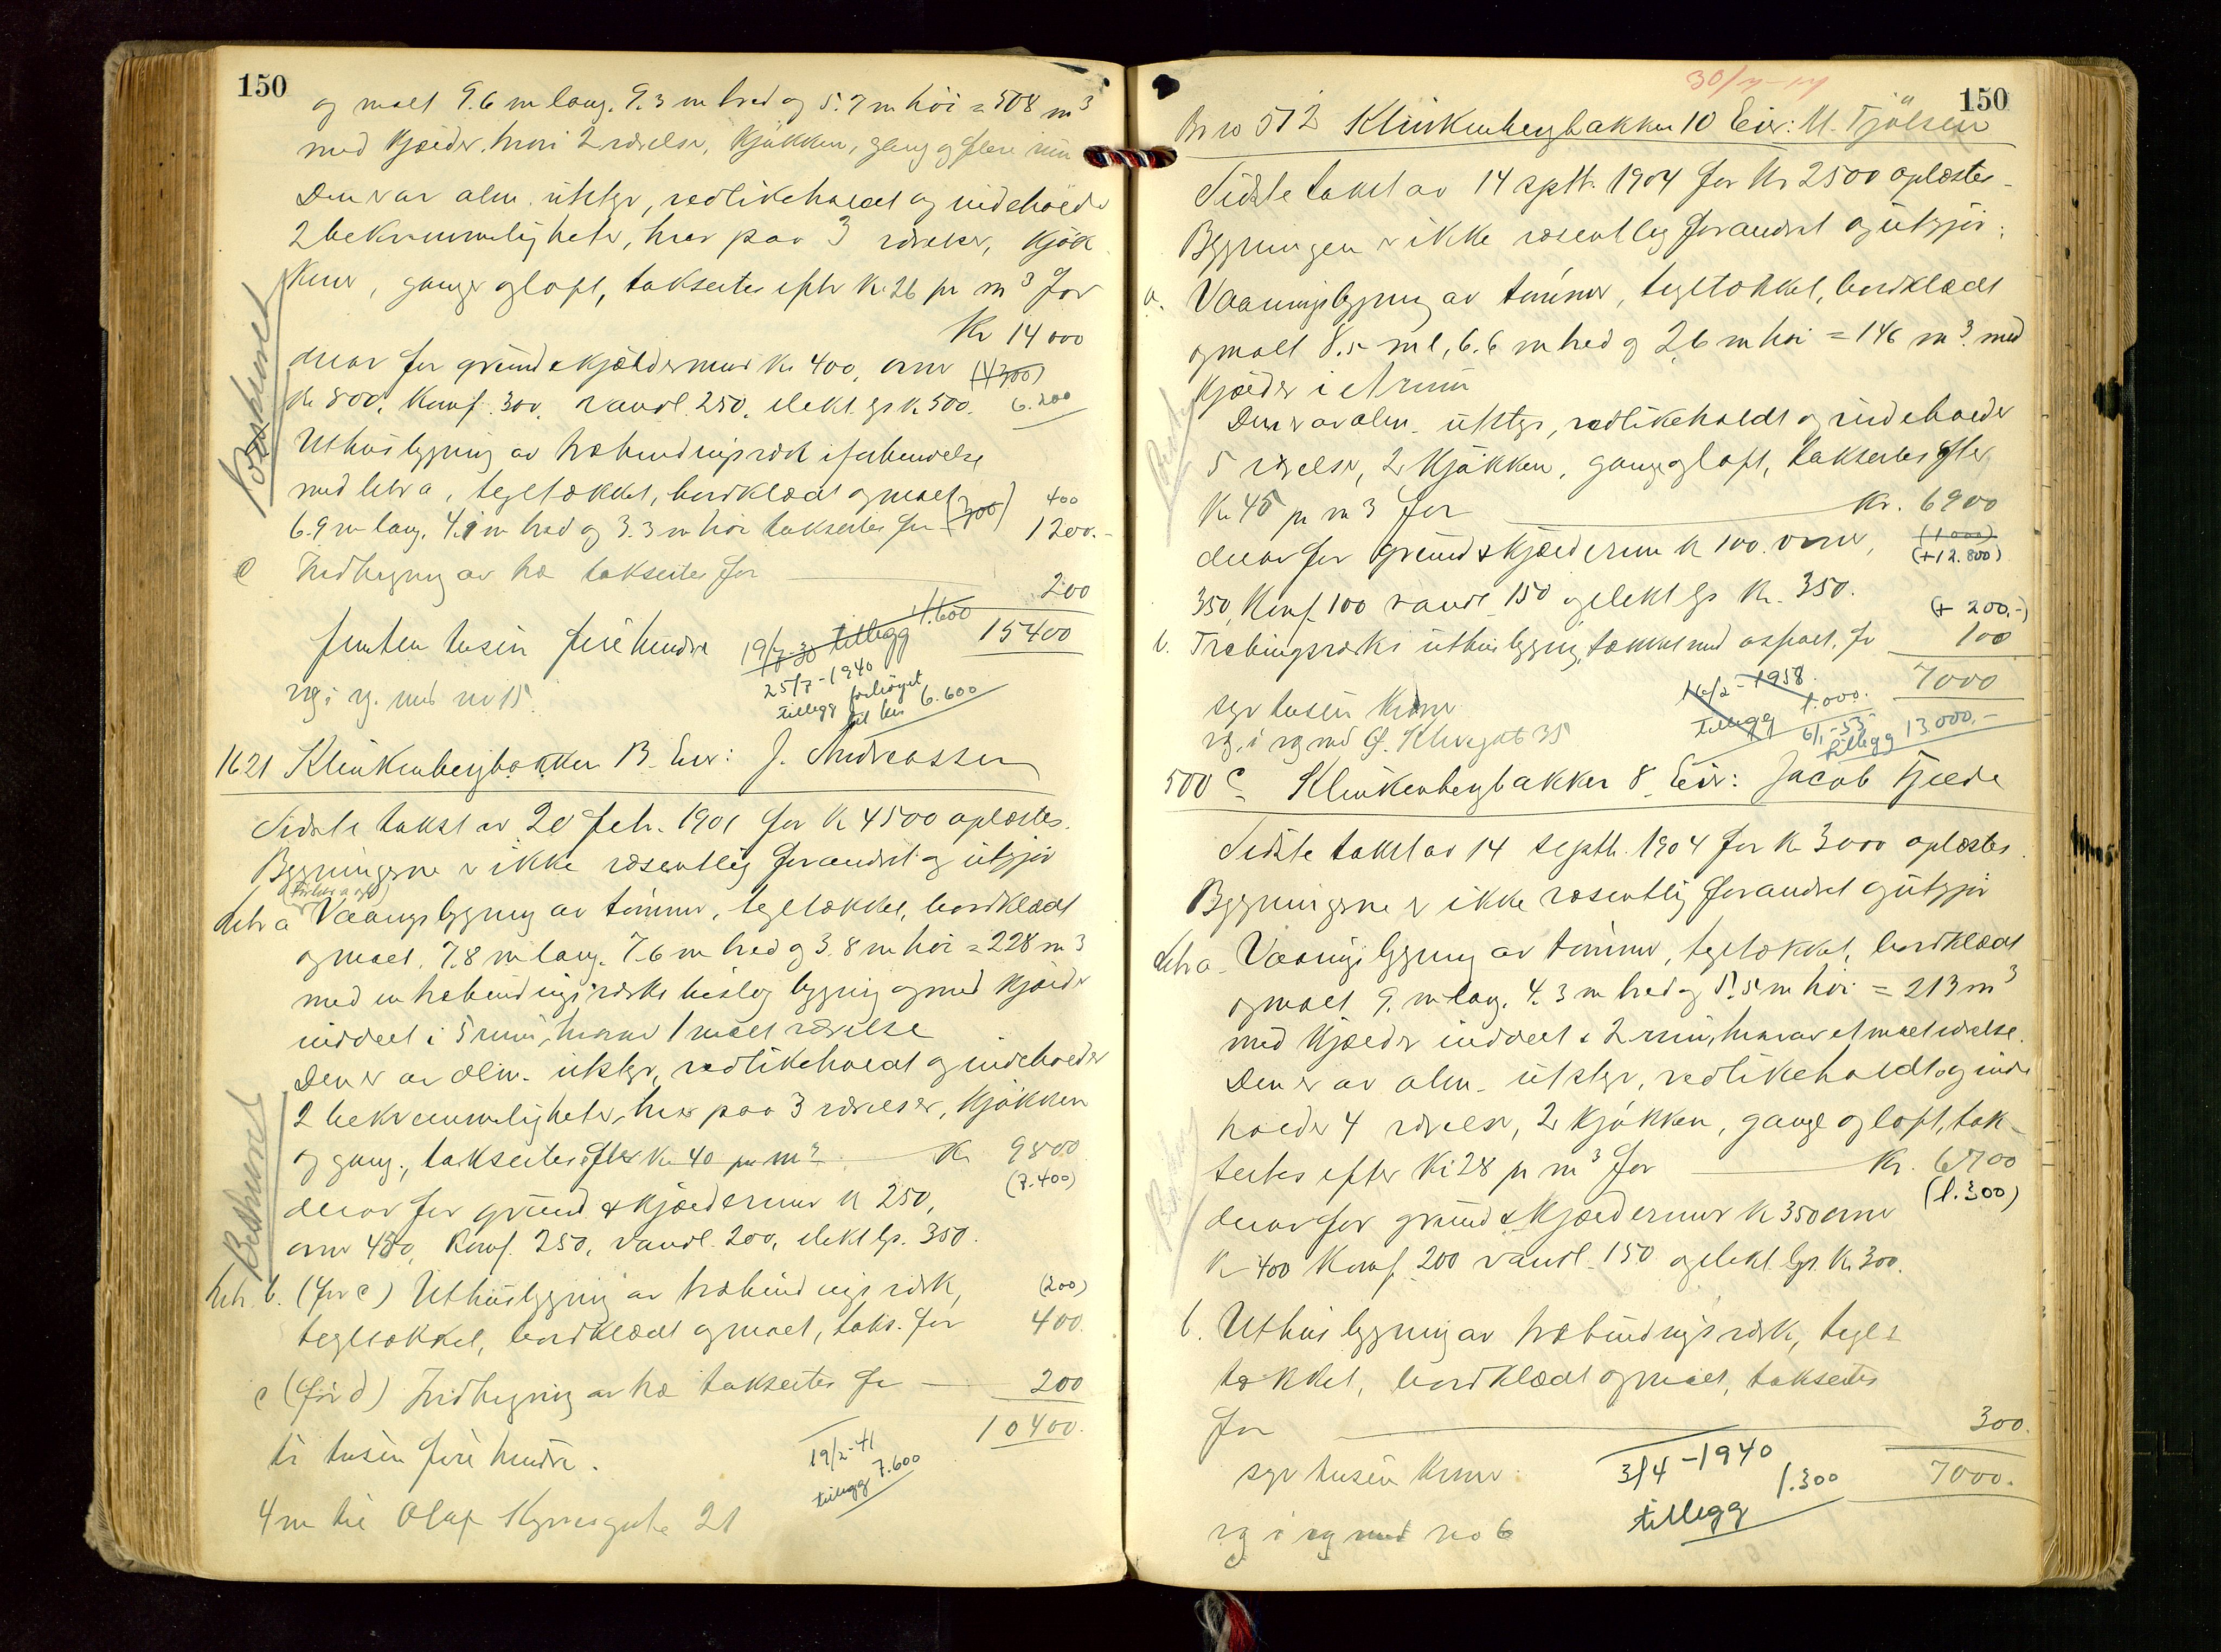 150
og maalt 9.6 m lang. 9.3 m bred og 5.7 m höi = 508 m³
med kjælder, hvori 2 værelser, kjökken, gang og flere rum
Den er av alm. utstyr, vedlikeholdt og indeholder
2 bekvemmeligheter, hver paa 3 værelser, kjök
ken, gange og loft, takseertes efter Kr. 26 pr m³ for
Kr 14000
derav for grund & kjældermur Kr 400, ovne (4300)
Kr 800, komf. 300, vandl. 250, elekt. lys Kr 500. 6.200
Uthusbygning av træbindingsverk i forbindelse
med litra a, tegltækket, bordklædt og malt (700) 400
6.9 m lang, 4.1 m bred og 3.3 m höi takseertes for 1200.-
c Indhegning av træ takseertes for 200
femten tusen fire hundre 15400
19/7-30 tillegg 1.600
25/7-1940
tillegg forhöyet
til kr 6.600
vg i vg. med no 15.
Boxhuset
1621 Klinkenbergbakken 13. Eier: J. Andreassen
Sidste takst av 20 febr. 1901 for Kr 4500 oplæstes.
Bygningerne er ikke væsentlig forandret og utgjör
litra a Vaaningsbygning av tömmer, tegltækket, bordklædt
og malt. 7.8 m lang. 7.6 m bred og 3.8 m höi = 228 m³
med en træbindingsverks bislag bygning og med kjælder
inddelt i 5 rum, hvorav 1 malt værelse
Den er av alm. utstyr, vedlikeholdt og indeholder
2 bekvemmeligheter, hver paa 3 værelser, kjökken
og gang, takseertes efter Kr 40 pr m³ Kr 9800
(7.400)
derav for grund & kjældermur Kr 250,
ovne 450, komf. 250, vandl. 200, elekt lys. 350.
litr. b. (för c) Uthusbygning av træbindingsverk, (200)
tegltækket, bordklædt og malt, taks. for 400.
c (för d) Indhegning av træ takseertes for 200
10400.
ti tusen fire hundre.
19/2-41
tillegg 7.600
4 m til Olaf Kyrresgate 21
30/
150
Br no 512 Klinkenbergbakken 10 Eier: M. Tjölsen
Sidste takst av 14 septb. 1904 for Kr 2500 oplæstes
Bygningen er ikke væsentlig forandret og utgjör:
a. Vaaningsbygning av tömmer, tegltækket, bordklædt
og malt 8.5 m l, 6.6 m bred og 2.6 m höi = 146 m³ med
kjælder i et rum
Den er av alm. utstyr, vedlikeholdt og indeholder
5 værelser, 2 kjökken, gange og loft, takseertes efter
Kr 45 pr m³ for Kr. 6900
derav for grund & kjældermur Kr 100. ovne, (1000)
(+12.800)
350, komf. 100 vandl 150 og elekt lys Kr. 350.
(+ 200.-)
b. Træbingsverks uthusbygning, tækket med asfalt, for 100
7000
16/2-1958.
tillegg 1.000.
6/1-53
tillegg 13.000.-
syv tusen kroner
vg. i vg med
500 c Klinkenbergbakken 8. Eier: Jacob Tjelde
Sidste takst av 14 septb. 1904 for Kr 3000 oplæstes.
Bygningerne er ikke væsentlig forandret og utgjör
litr a. Vaaningsbygning av tömmer, tegltækket, bordklædt
og malt 9. m lang. 4.3 m bred og 5.5 m höi = 213 m³
med kjælder inddelt i 2 rum, hvorav et malt værelse.
Den er av alm. utstyr, vedlikeholdt og inde
holder 4 værelser, 2 kjökken, gange og loft, tak-
seertes efter Kr 28 pr m³ for Kr. 6700
(1.300)
derav for grund & kjældermur Kr 350 ovne
Kr 400 komf. 200 vandl. 150 og elekt lys. Kr. 300.
b. Uthusbygning av træbindingsverk, tegl-
tækket, bordklædt og malt, takseertes
for 300.
syv tusen kroner. 7000.
3/4-1940
tillegg 1.300
vg i vg med no 6